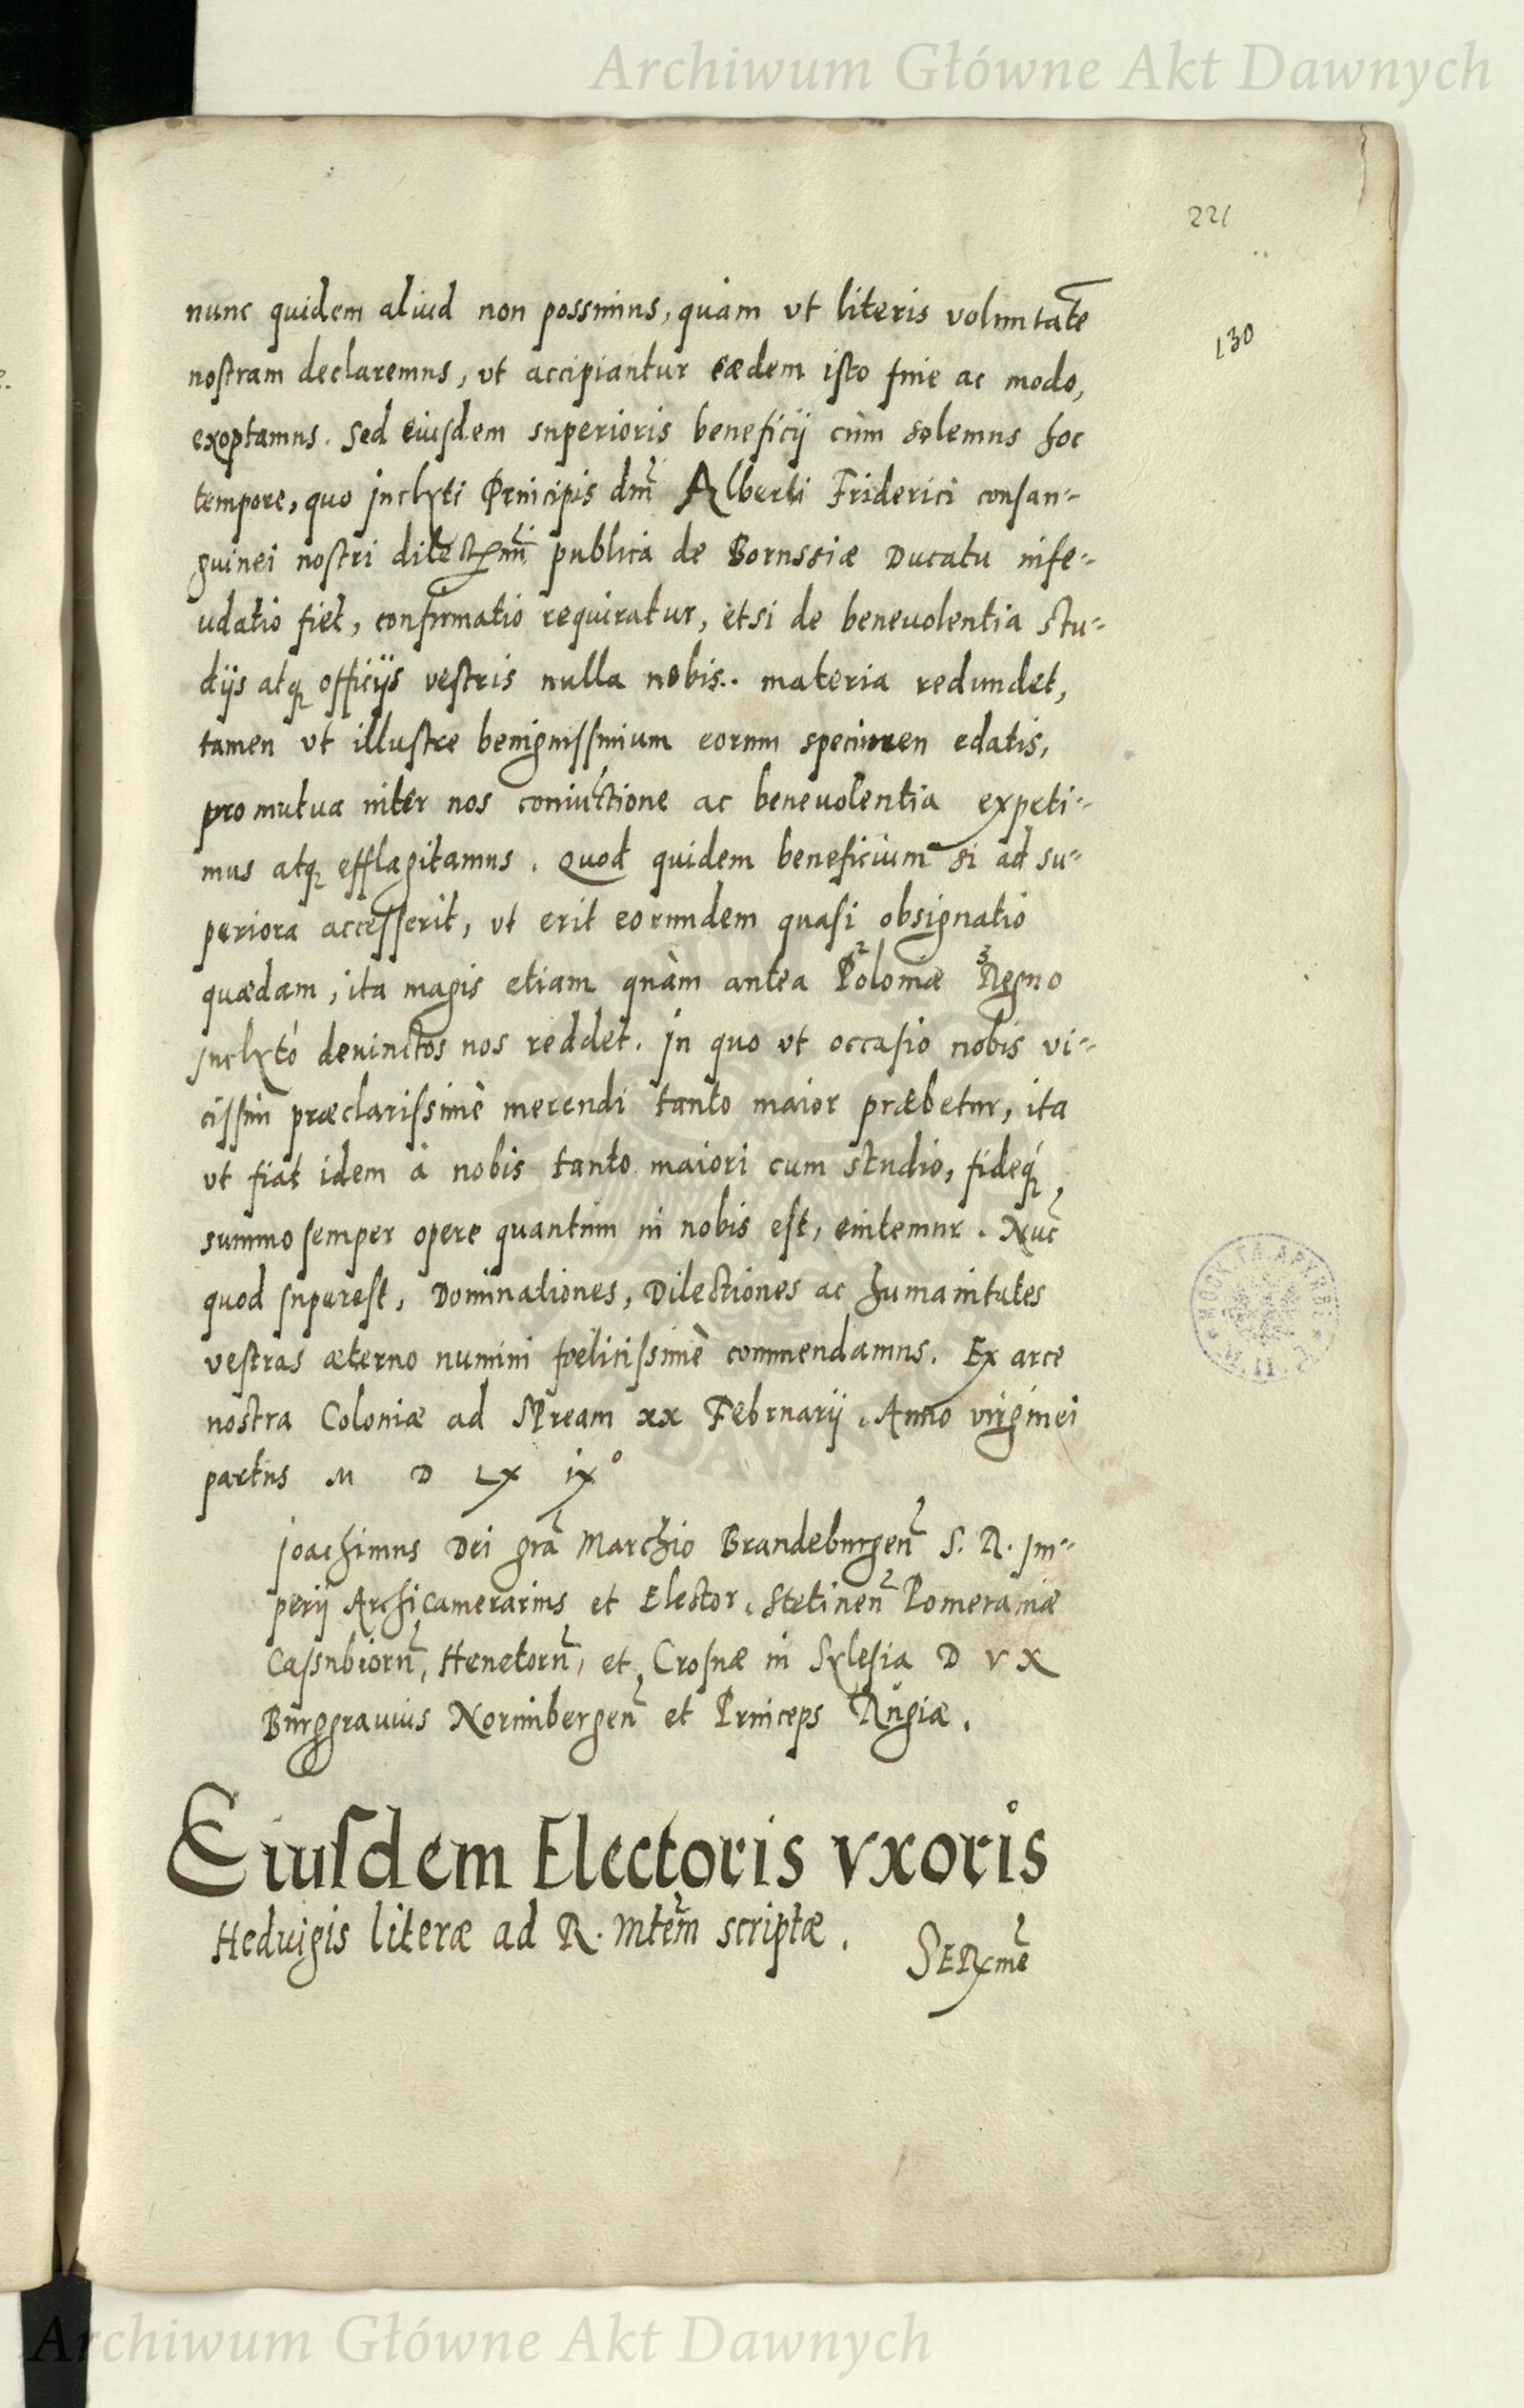 Archiwum Główne Akt Dawnych
221
nunc quidem aliud non possimus, quàm vt literis voluntatē
130
nostram declaremus, vt accipiantur eædem isto fine ac modo,
exoptamus. Sed eiusdem superioris beneficij cùm solemus hoc
tempore, quo jnclyti Principis dnĩ Alberti Friderici consan-
guinei nostri publica de Borussiæ Ducatu infe-
udatio fiet, confirmatio requiratur, etsi de beneuolentia stu-
dijs atq officijs vestris nulla nobis materia redundet,
tamen vt illustre benignissimum eorum specimen edatis,
pro mutua inter nos coniuctione ac beneuolentia expeti-
mus atq efflagitamus. Quod quidem beneficium si ad su-
periora accesserit, vt erit eorundem quasi obsignatio
quædam, ita magis etiam quàm antea Poloniæ Regno
jnclyto deuinctos nos reddet. Jn quo vt occasio nobis vi-
cissim præclarissimè merendi tanto maior præbetur, ita
vt fiat idem à nobis tanto maiori cum studio, fideq,
summo semper opere quantum in nobis est, enitemur. Nuc̃
quod superest, Dominationes, Dilectiones ac humanitates
vestras æterno numini fœlicissimè commendamus. Ex arce
nostra Coloniæ ad Spream xx Februarij. Anno virginei
partus M D LX ix°
Joachimus Dei grã Marchio Brandeburgeñ S. R. Jm-
perij Archicamerarius et Elector. Stetineñ Pomeraniæ
Cassubiorũ, Henetorũ, et Crosnæ in Sylesia D V X
Burggrauius Norimbergeñ et Princeps Rugiæ.
Eiusdem Electoris vxoris
Heduigis literæ ad R. Mtem̃ scriptæ.
SERxmẽ
Archiwum Główne Akt Dawnych